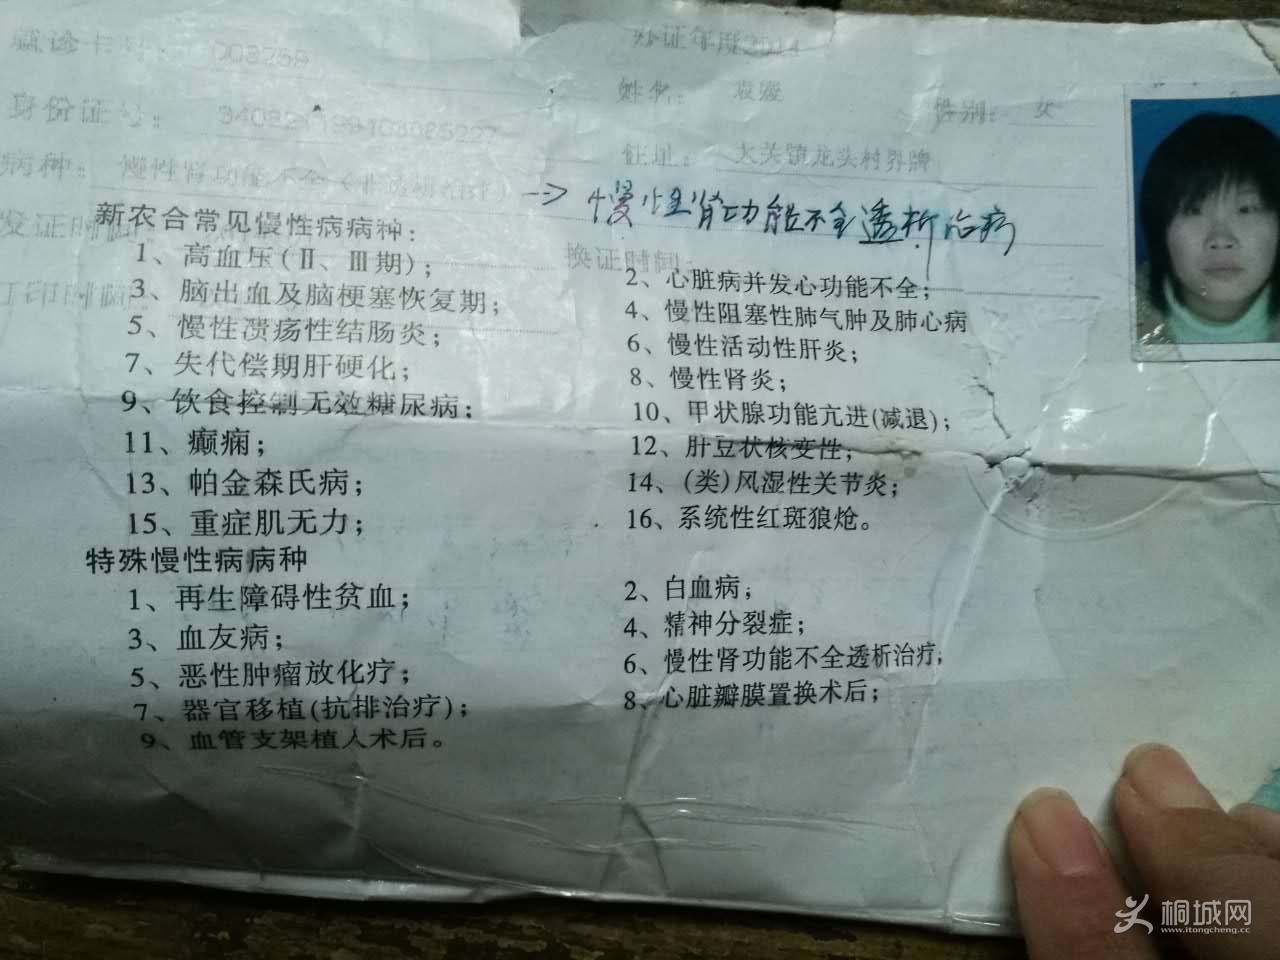 就诊卡号： 008259
办证年度2014
姓名： 袁媛
性别： 女
身份证号：
住址： 大关镇龙头村界牌
病种： 慢性肾功能不全
→ 慢性肾功能不全透析治疗
发证时间
换证时间：
打印时间
新农合常见慢性病病种：
1、高血压(Ⅱ、Ⅲ期)；
2、心脏病并发心功能不全；
3、脑出血及脑梗塞恢复期；
4、慢性阻塞性肺气肿及肺心病
5、慢性溃疡性结肠炎；
6、慢性活动性肝炎；
7、失代偿期肝硬化；
8、慢性肾炎；
9、饮食控制无效糖尿病；
10、甲状腺功能亢进(减退)；
11、癫痫；
12、肝豆状核变性；
13、帕金森氏病；
14、(类)风湿性关节炎；
15、重症肌无力；
16、系统性红斑狼疮。
特殊慢性病病种
1、再生障碍性贫血；
2、白血病；
3、血友病；
4、精神分裂症；
5、恶性肿瘤放化疗；
6、慢性肾功能不全透析治疗；
7、器官移植(抗排治疗)；
8、心脏瓣膜置换术后；
9、血管支架植入术后。
桐城网
www.itongcheng.cc